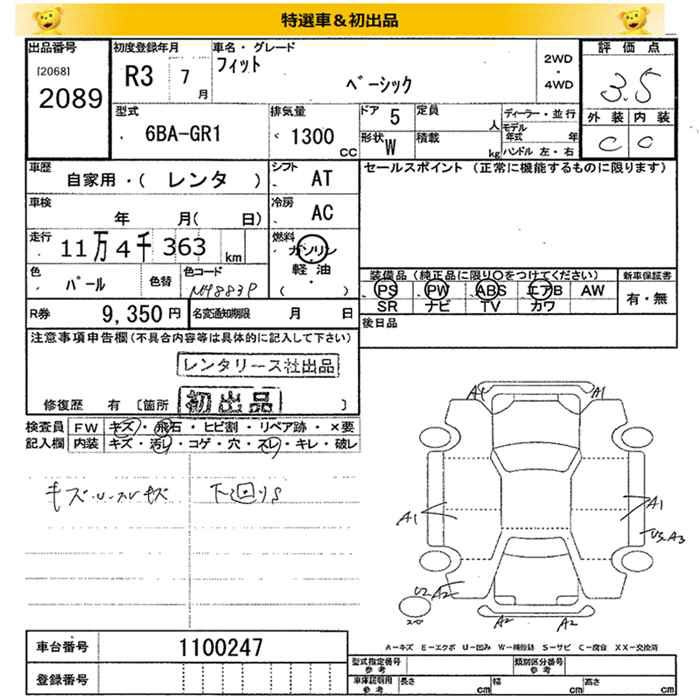 特選車＆初出品
出品番号 初度登録年月 車名・グレード 評価点
[2068]
2089
R3 7月
フィット
ベーシック
2WD・4WD
3.5
外装 内装
C C
型式 6BA-GR1
排気量 1300 CC
ドア 5 定員 人
形状 W 積載 kg
ディーラー・並行
モデル年式 年
ハンドル 左・右
車歴 自家用・（ レンタ ）
シフト AT
セールスポイント（正常に機能するものに限ります）
車検 年 月（ 日）
冷房 AC
走行 11万4千363km
燃料 ガソリン
軽油
・
（ ）
色 パール 色替 色コード NH883P
装備品（純正品に限り〇をつけてください） 新車保証書
PS PW ABS エアB AW
SR ナビ TV カワ
有・無
R券 9,350円 名変通知期限 月 日
後日品
注意事項申告欄（不具合内容等は具体的に記入して下さい）
レンタリース社出品
初出品
修復歴 有 [箇所 ]
検査員 FW キズ・飛石・ヒビ割・リペア跡・×要
記入欄 内装 キズ・汚レ・コゲ・穴・スレ・キレ・破レ
キズ・U・スレキズ 下回りS
A1 A1
A1 A1
U3.A3
U2 A2 A2
A2 A2
車台番号 1100247
登録番号
A－キズ E－エクボ U－凹み W－補修跡 S－サビ C－腐食 XX－交換済
型式指定番号 参考 類別区分番号 参考
車庫証明用 参考 長さ cm 幅 cm 高さ cm